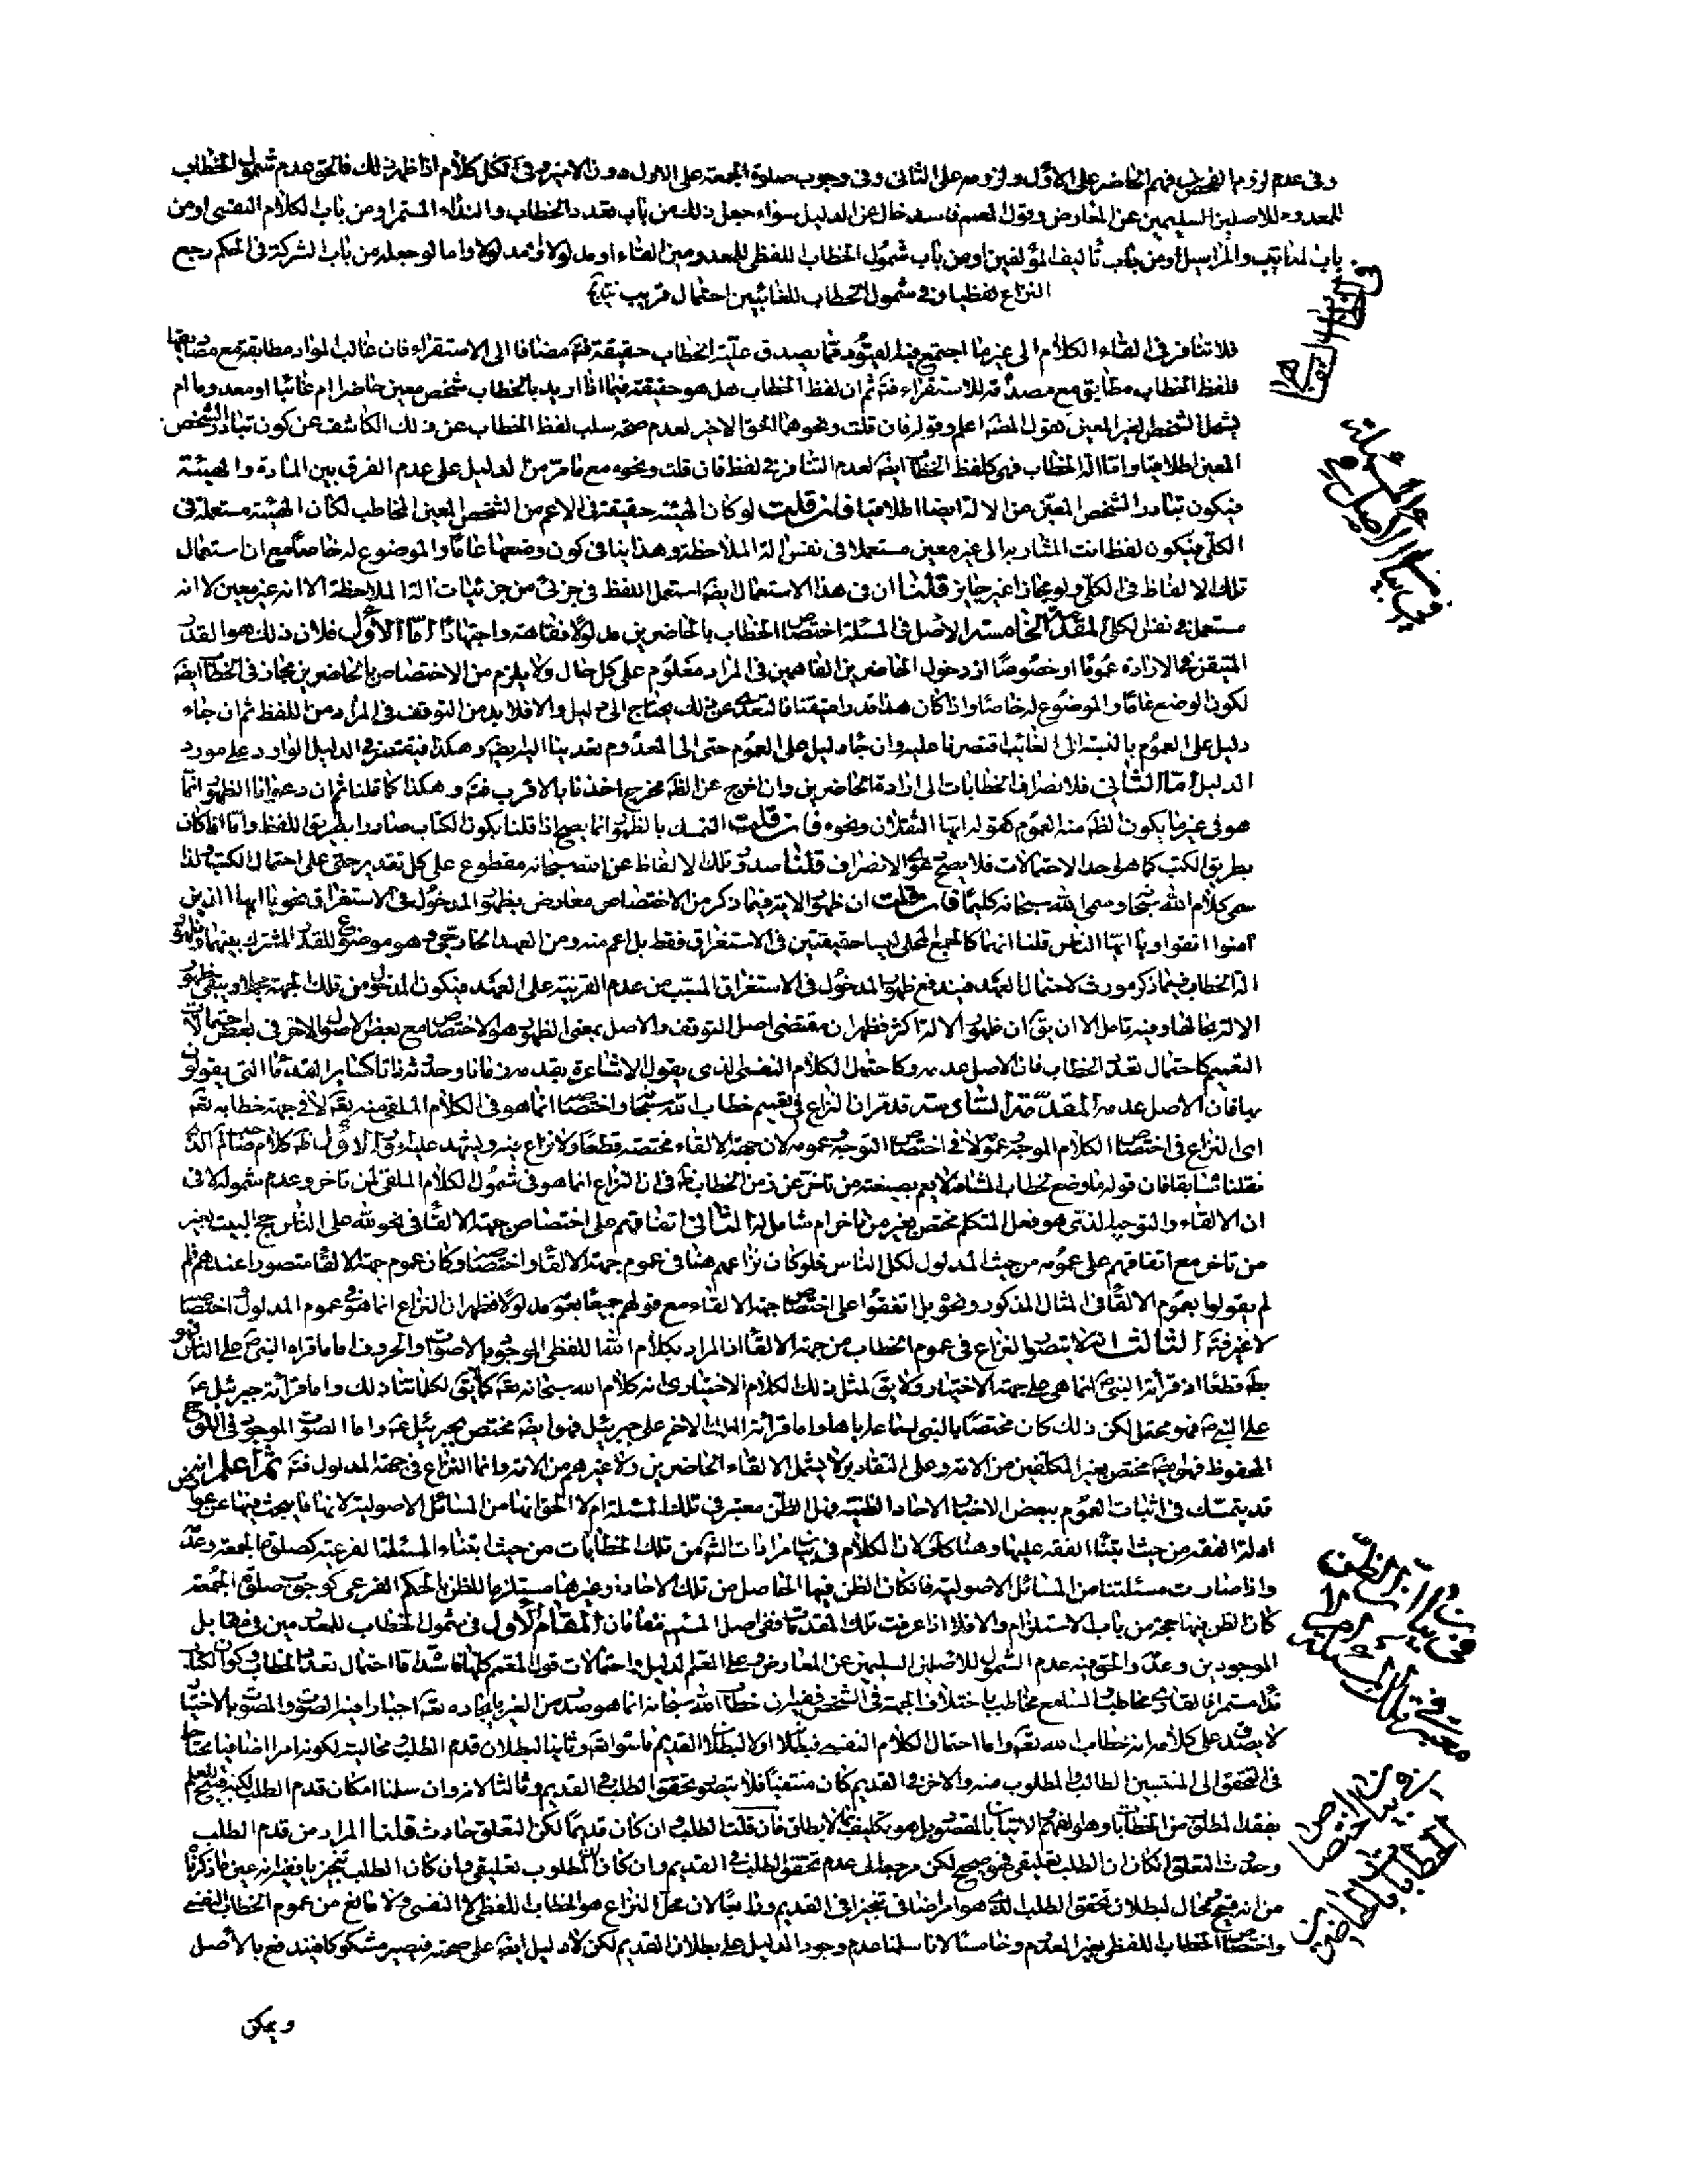 وفى عدم لزوم الفحص فهم الحاضر على الاول ولزومه على الثانى وفى وجوب صلوة الجمعة على الاول دون الاخير وفى كل كلام اذا ظهر ذلك فالحق عدم شمول الخطاب
للمعدوم للاصلين السليمين عن المعارض وقول المعمم فاسد خال عن الدليل سواء جعل ذلك من باب تعدد الخطاب والنداء المستمر او من باب الكلام النفسى او من
باب المكاتيب والمراسيل او من باب تاليف المؤلفين او من باب شمول الخطاب اللفظى للمعدومين القاء او مدلولا واما لو جعله من باب الشركة فى الحكم رجع
النزاع لفظيا وفى شمول الخطاب للغائبين احتمال قريب
فلا تنافر فى القاء الكلام الى غير ما اجتمع فيه القيود فيما يصدق عليه الخطاب حقيقة مضافا الى الاستقراء فان غالب المواد مطابقة مع
فلفظ الخطاب مطابق مع مصدره للاستقراء فتم ثم ان لفظ الخطاب هل هو حقيقة فيما اذا اريد بالخطاب شخص معين حاضرا ام غائبا او معدوما ام
يشمل الشخص الغير المعين فان قلت ونحوهما الحق الاخير لعدم صحة سلب لفظ الخطاب عن ذلك الكاشف عن كون تبادر الشخص
المعين اطلاقيا واما الة الخطاب فهى كلفظ الخطاب ايضا لعدم التنافر فى لفظ فان قلت ونحوه مع ما مر من الدليل على عدم الفرق بين المادة والهيئة
فيكون تبادر الشخص المعين من الالة ايضا اطلاقيا فان قلت لو كان الهيئة حقيقة فى الاعم من الشخص المعين المخاطب لكان الهيئة مستعملة فى
الكلى فيكون لفظ انت المشار به الى غير معين مستعملا فى نفس الة الملاحظة وهذا ينافى كون وضعها عاما والموضوع له خاصا مع ان استعمال
تلك الالفاظ فى الكلى ولو مجازا غير جايز قلنا ان فى هذا الاستعمال ايضا استعمل اللفظ فى جزئى من جزئيات الة الملاحظة الا انه غير معين لا انه
مستعمل فى نفس الكلى المقدمة الخامسة الاصل فى المسئلة اختصاص الخطاب بالحاضرين مدلولا فقاهة واجتهادا اما الاول فلان ذلك هو القدر
المتيقن فى الارادة عموما او خصوصا اذ دخول الحاضرين الفاهمين فى المراد معلوم على كل حال ولا يلزم من الاختصاص بالحاضرين مجاز فى الخطاب ايضا
لكون الوضع عاما والموضوع له خاصا واذا كان هذا قدرا متيقنا فالتعدى عن ذلك يحتاج الى دليل والا فلا بد من التوقف فى المراد من اللفظ ثم ان جاء
دليل على العموم بالنسبة الى الغائب اقتصرنا عليه وان جاء دليل على العموم حتى الى المعدوم تعدينا اليه ايضا وهكذا فيقتصر فى الدليل الوارد على مورد
الدليل اما الثانى فلانصراف الخطابات الى ارادة الحاضرين وان اخرج عن الظ مخرج اخذنا بالاقرب فتم وهكذا كما قلنا ثم ان دعوانا الظهور انما
هو فى غير ما يكون الظ منه العموم كقوله ايها الثقلان ونحوه فان قلت التمسك بالظهور انما يصح اذا قلنا بكون الكتاب صادرا بطريق اللفظ واما اذا كان
بطريق الكتب كما هو احد الاحتمالات فلا يصح دعوى الانصراف قلنا صدور تلك الالفاظ عن الله سبحانه مقطوع على كل تقدير حتى على احتمال الكتب ولذا
سمى كلام الله سبحانه وسمى الله سبحانه كليما فان قلت ان ظهور الالة فيما ذكر من الاختصاص معارض بظهور المدخول فى الاستغراق نحو يا ايها الذين
آمنوا اتقوا ويا ايها الناس قلنا انهما كالجمع المحلى ليسا حقيقتين فى الاستغراق فقط بل اعم منه ومن العهد الخارجى وهو موضوع للقدر المشترك بينهما
الة الخطاب فيما ذكر مورث لاحتمال العهد فيندفع ظهور المدخول فى الاستغراق المسبب من عدم القرينة على العهد فيكون المدخول من تلك الجهة مجملا ويبقى ظهور
الالة بحالها وفيه تامل الا ان يق ان ظهور الالة اكثر فظهر ان مقتضى اصل التوقف والاصل بمعنى الظهور هو الاختصاص مع بعض الاصول الاخر فى بعض احتمالات
التعميم كاحتمال تعدد الخطاب فان الاصل عدمه وكاحتمال الكلام النفسى الذى يقول الاشاعرة بقدمه زمانا وحدوثه ذاتا كساير القدماء التى يقولون
بها فان الاصل عدمه المقدمة السادسة قد مر ان النزاع فى تعميم خطاب الله سبحانه واختصاصه انما هو فى الكلام الملقى منه تعالى لا فى جهة خطابه تعالى
اى النزاع فى اختصاص الكلام الموجه عموما لا فى اختصاص التوجيه وعمومه لان جهة الالقاء مختصة قطعا ولا نزاع فيه ويشهد عليه امور الاول ظ كلام صاحب المعالم الذى
نقلناه سابقا فان قوله ما وضع لخطاب المشافهة لا يعم بصيغته من تاخر عن زمن الخطاب ظ فى ان النزاع انما هو فى شمول الكلام الملقى لمن تاخر وعدم شموله لا فى
ان الالقاء والتوجيه الذى هو فعل المتكلم مختص بغير من تاخر ام شامل له الثانى اتفاقهم على اختصاص جهة الالقاء فى نحو لله على الناس حج البيت بغير
من تاخر مع اتفاقهم على عمومه من حيث المدلول لكل الناس فلو كان نزاعهم هنا فى عموم جهة الالقاء واختصاصها وكان عموم جهة الالقاء متصورا عندهم فلم
لم يقولوا بعموم الالقاء فى المثال المذكور ونحوه بل اتفقوا على اختصاص جهة الالقاء مع قولهم جميعا بعمومه مدلولا فظهر ان النزاع انما هو فى عموم المدلول واختصاصه
لا غير فتم الثالث انه لا يتصور النزاع فى عموم الخطاب من جهة الالقاء اذ المراد بكلام الله اللفظى الموجود بالاصوات والحروف اما ما قراه النبى ص على الناس فهو
بط قطعا اذ قرائة النبى ص انما هى على جهة الاخبار ولا يق لمثل ذلك الكلام الاخبارى انه كلام الله سبحانه تعالى كما يق لكلماتنا ذلك واما قرائة جبرئيل ع
على النبى ص فهو محتمل لكن ذلك كان مختصا بالنبى ص واما ما قرائة الملك الاخر على جبرئيل فهو ايضا مختص بجبرئيل ع واما الصوت الموجود فى اللوح
المحفوظ فهو ايضا مختص بغير المكلفين من الامة وعلى التقادير لا يشمل الالقاء الحاضرين ولا غيرهم من الامة وانما النزاع فى جهة المدلول فتم ثم اعلم انه
قد يتمسك فى اثبات العموم ببعض الاخبار الاحاد الظنية فهل الظن معتبر فى تلك المسئلة ام لا الحق انها من المسائل الاصولية لانها ما يبحث فيها عن عوارض
ادلة الفقه من حيث ابتناء الفقه عليها وهنا كك لان الكلام فى بيان مرادات الشارع من تلك الخطابات من حيث ابتناء المسئلة الفرعية كصلوة الجمعة وعدمه
واذا صارت مسئلتنا من المسائل الاصولية فان كان الظن فيها الحاصل من تلك الاخبار وغيرها مستلزما للظن بالحكم الفرعى كوجوب صلوة الجمعة
كان الظن فيها حجة من باب الاستلزام والا فلا اذا عرفت تلك المقدمات ففى اصل المسئلة مقامان المقام الاول فى شمول الخطاب للمعدومين فى مقابل
الموجودين وعدمه والحق فيه عدم الشمول للاصلين السليمين عن المعارض وعلى المعمم الدليل واحتمالات قول المعمم كلها فاسدة اما احتمال تعدد الخطاب وكون الكتاب
نداء مستمرا فالقارى مخاطب والسامع مخاطب باختلاف الجهة فى الشخص ففيه ان خطاب الله سبحانه انما هو صدر من الغير بايجاده تعالى اجبارا فيه الصوت والمصوت بالاختيار
لا يصدق على كلامه انه خطاب الله تعالى واما احتمال الكلام النفسى فبطلانه اولا لبطلان القديم ما سوى الله تعالى وثانيا لبطلان قدم الطلب مخالبته لكونه امرا اضافيا محتاجا
فى التحقق الى المنتسبين الطالب والمطلوب منه والاخر فى القديم كان منتفيا فلا يتصور تحقق الطلب فى القديم وثالثا لانه وان سلمنا امكان قدم الطلب لكنه قبيح للعلم
بفقد المطلوب من الخطاب وهو الفهم ثم الاتيان بالمقصود بل هو تكليف بما لا يطاق فان قلت الطلب وان كان قديما لكن التعلق حادث قلنا المراد من قدم الطلب
وحدوث التعلق ان كان ان الطلب تعليقى فهو صحيح لكن مرجعه الى عدم تحقق الطلب فى القديم وان كان ان المطلوب تعليقى بان كان الطلب تنجيزيا ففيه انه عين ما ذكرنا
من انه قبيح ومحال لبطلان تحقق الطلب الذى هو امر اضافى تنجيزا فى القديم ورابعا لان محل النزاع هو الخطاب اللفظى لا النفسى ولا مانع من عموم الخطاب النفسى
واختصاص الخطاب اللفظى بغير المعدوم وخامسا لانا سلمنا عدم وجود الدليل على بطلان القديم لكن لا دليل ايضا على صحته فيصير مشكوكا فيندفع بالاصل
ويمكن
فى بيان الاصل فى المسئلة
فى بيان ان الظن معتبر فى تلك المسئلة ام لا
فى بيان اختصاص الخطاب بالحاضرين